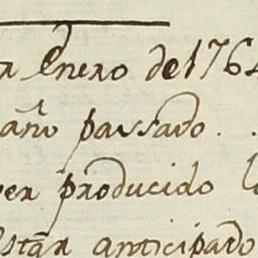 Enero de 1764
año passado . .
ver producido l
estàn anticipado